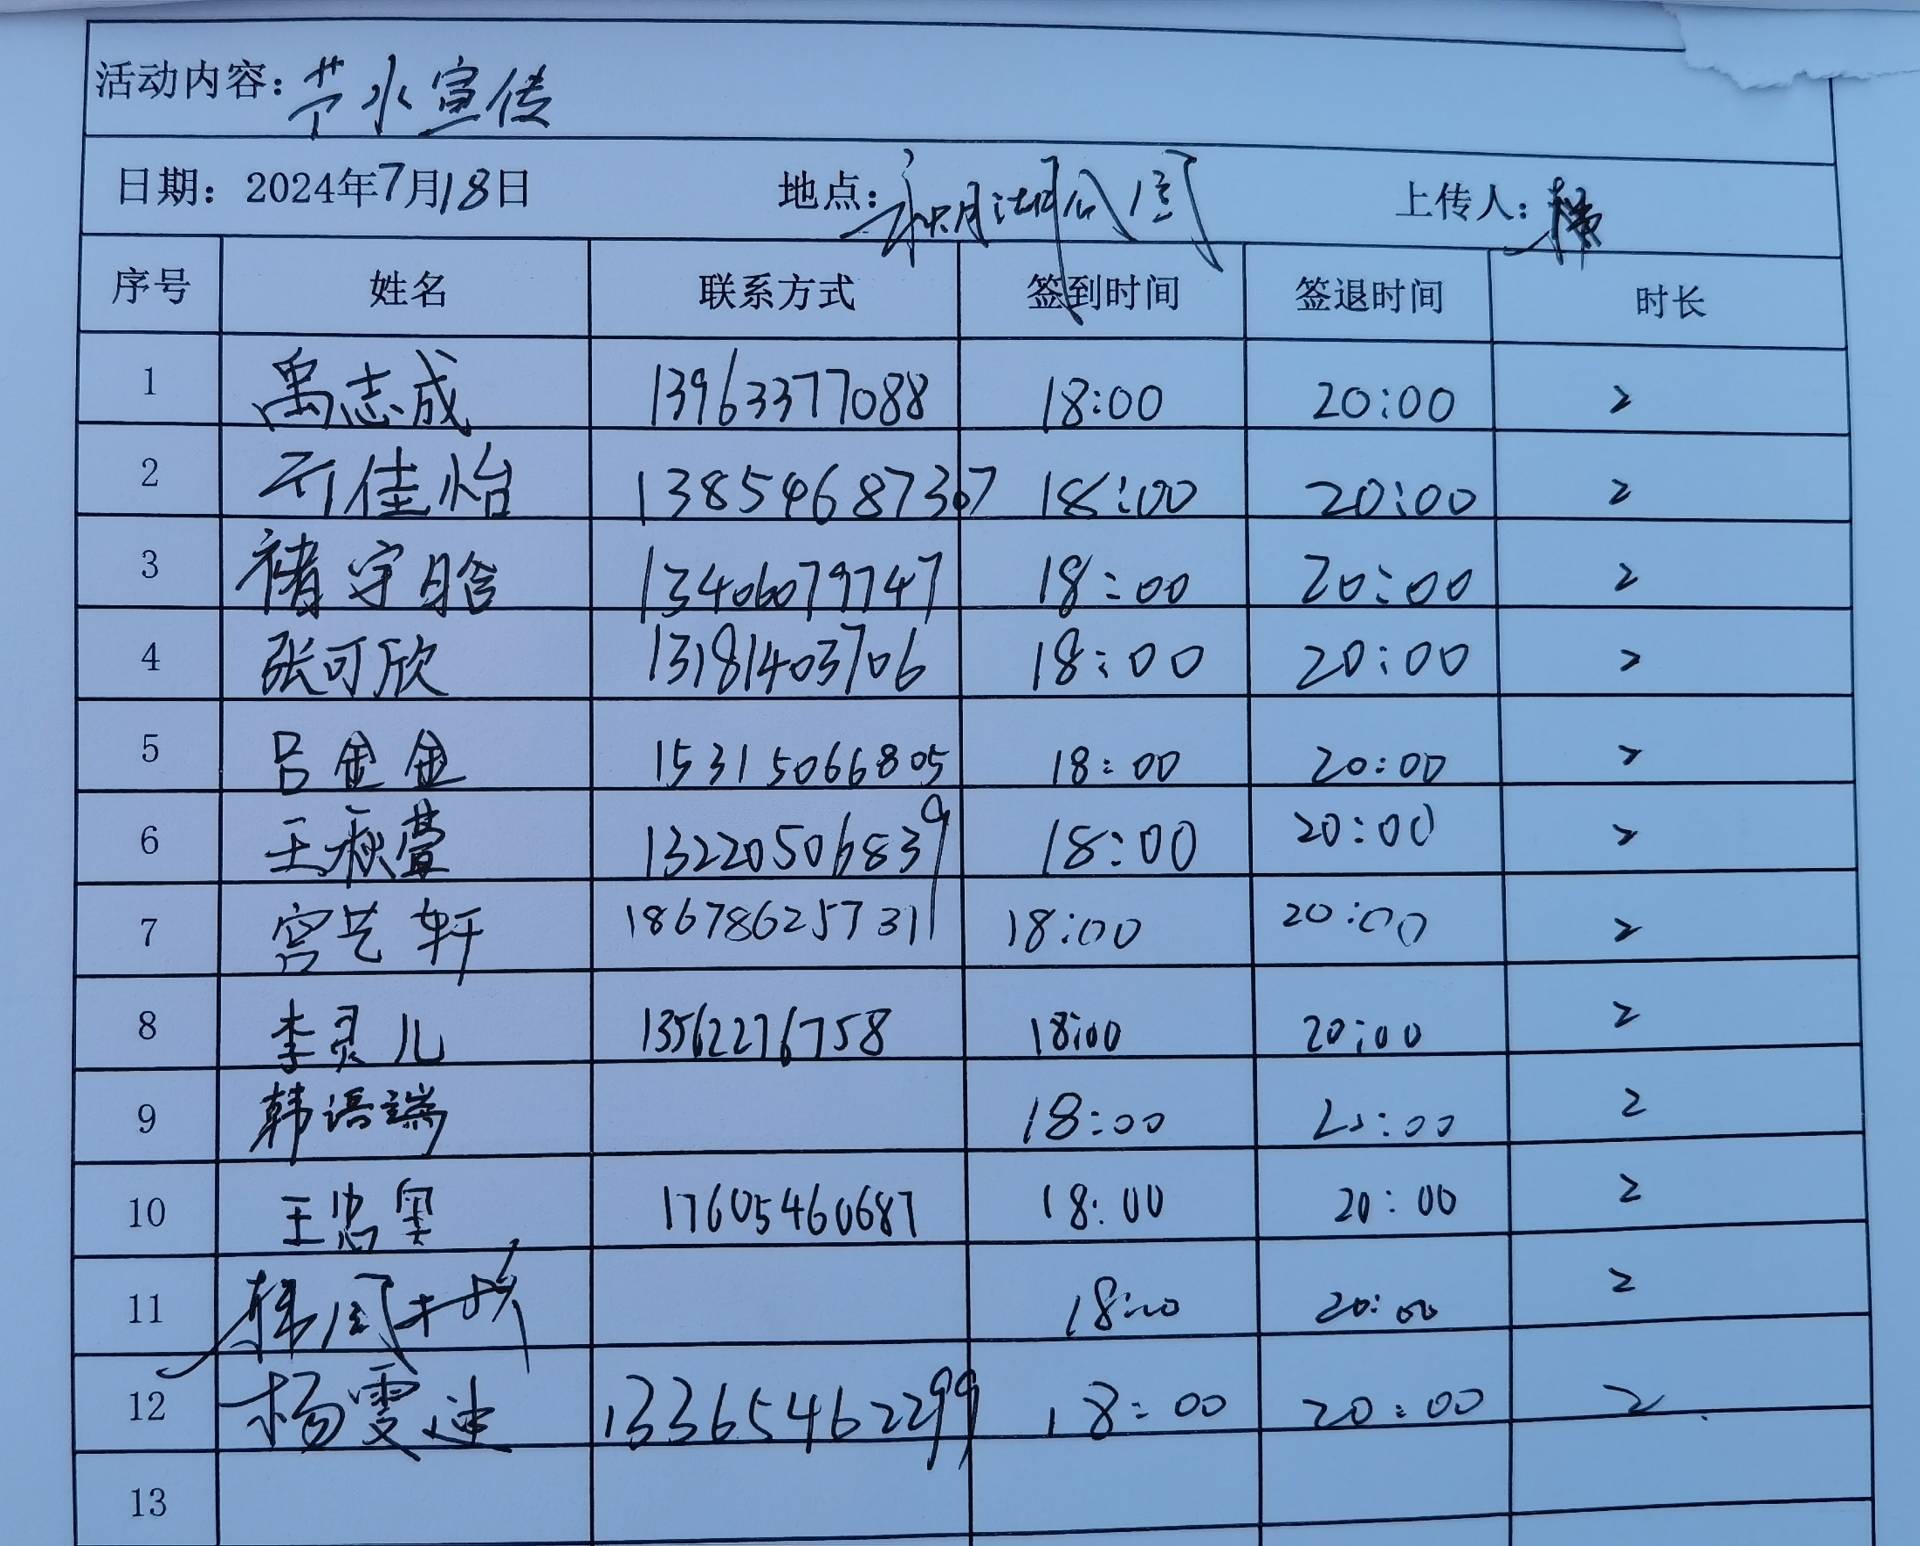 活动内容：节水宣传
日期：2024年7月18日 地点：湖公园 上传人：
序号 姓名 联系方式 签到时间 签退时间 时长
1 禹志成 13963377088 18:00 20:00 2
2 亓佳怡 13854687307 18:00 20:00 2
3 褚守晗 13406079747 18:00 20:00 2
4 张可欣 13181403706 18:00 20:00 2
5 吕金金 15315066805 18:00 20:00 2
6 王秋萱 13220506839 18:00 20:00 2
7 宫艺轩 18678625731 18:00 20:00 2
8 李灵儿 13562276758 18:00 20:00 2
9 韩语端 18:00 20:00 2
10 王忠 17605460687 18:00 20:00 2
11 18:00 20:00 2
12 杨雯迪 13365462299 18:00 20:00 2
13